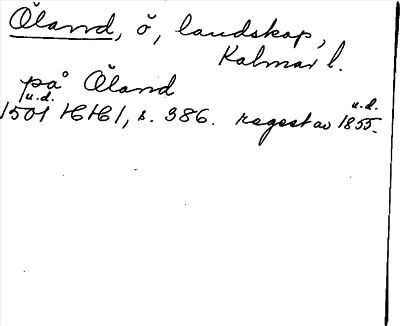 Öland, ö, landskap,
Kalmar l.
på Öland
u.d. u.d.
1501 HH 1, s. 386. regest av 1855.